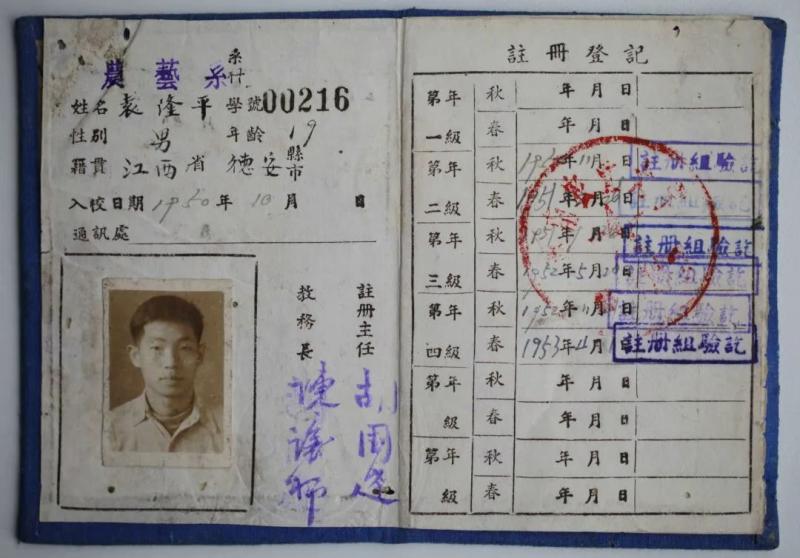 農藝系
系科
姓名 袁隆平 學號 00216
性別 男 年齡 19
籍貫 江西省 德安 縣市
入校日期 1950年10月 日
通訊處
註冊主任
教務長
註冊登記
第一年級 秋 年月日
春 年月日
第二年級 秋 年11月 日 註册組驗訖
春 1951年 月 日 註册組驗訖
第三年級 秋 1951年 月 日 註册組驗訖
春 1952年5月 日 註册組驗訖
第四年級 秋 1952年11月 日 註册組驗訖
春 1953年 月 日 註册組驗訖
第年級 秋 年月日
春 年月日
第年級 秋 年月日
春 年月日